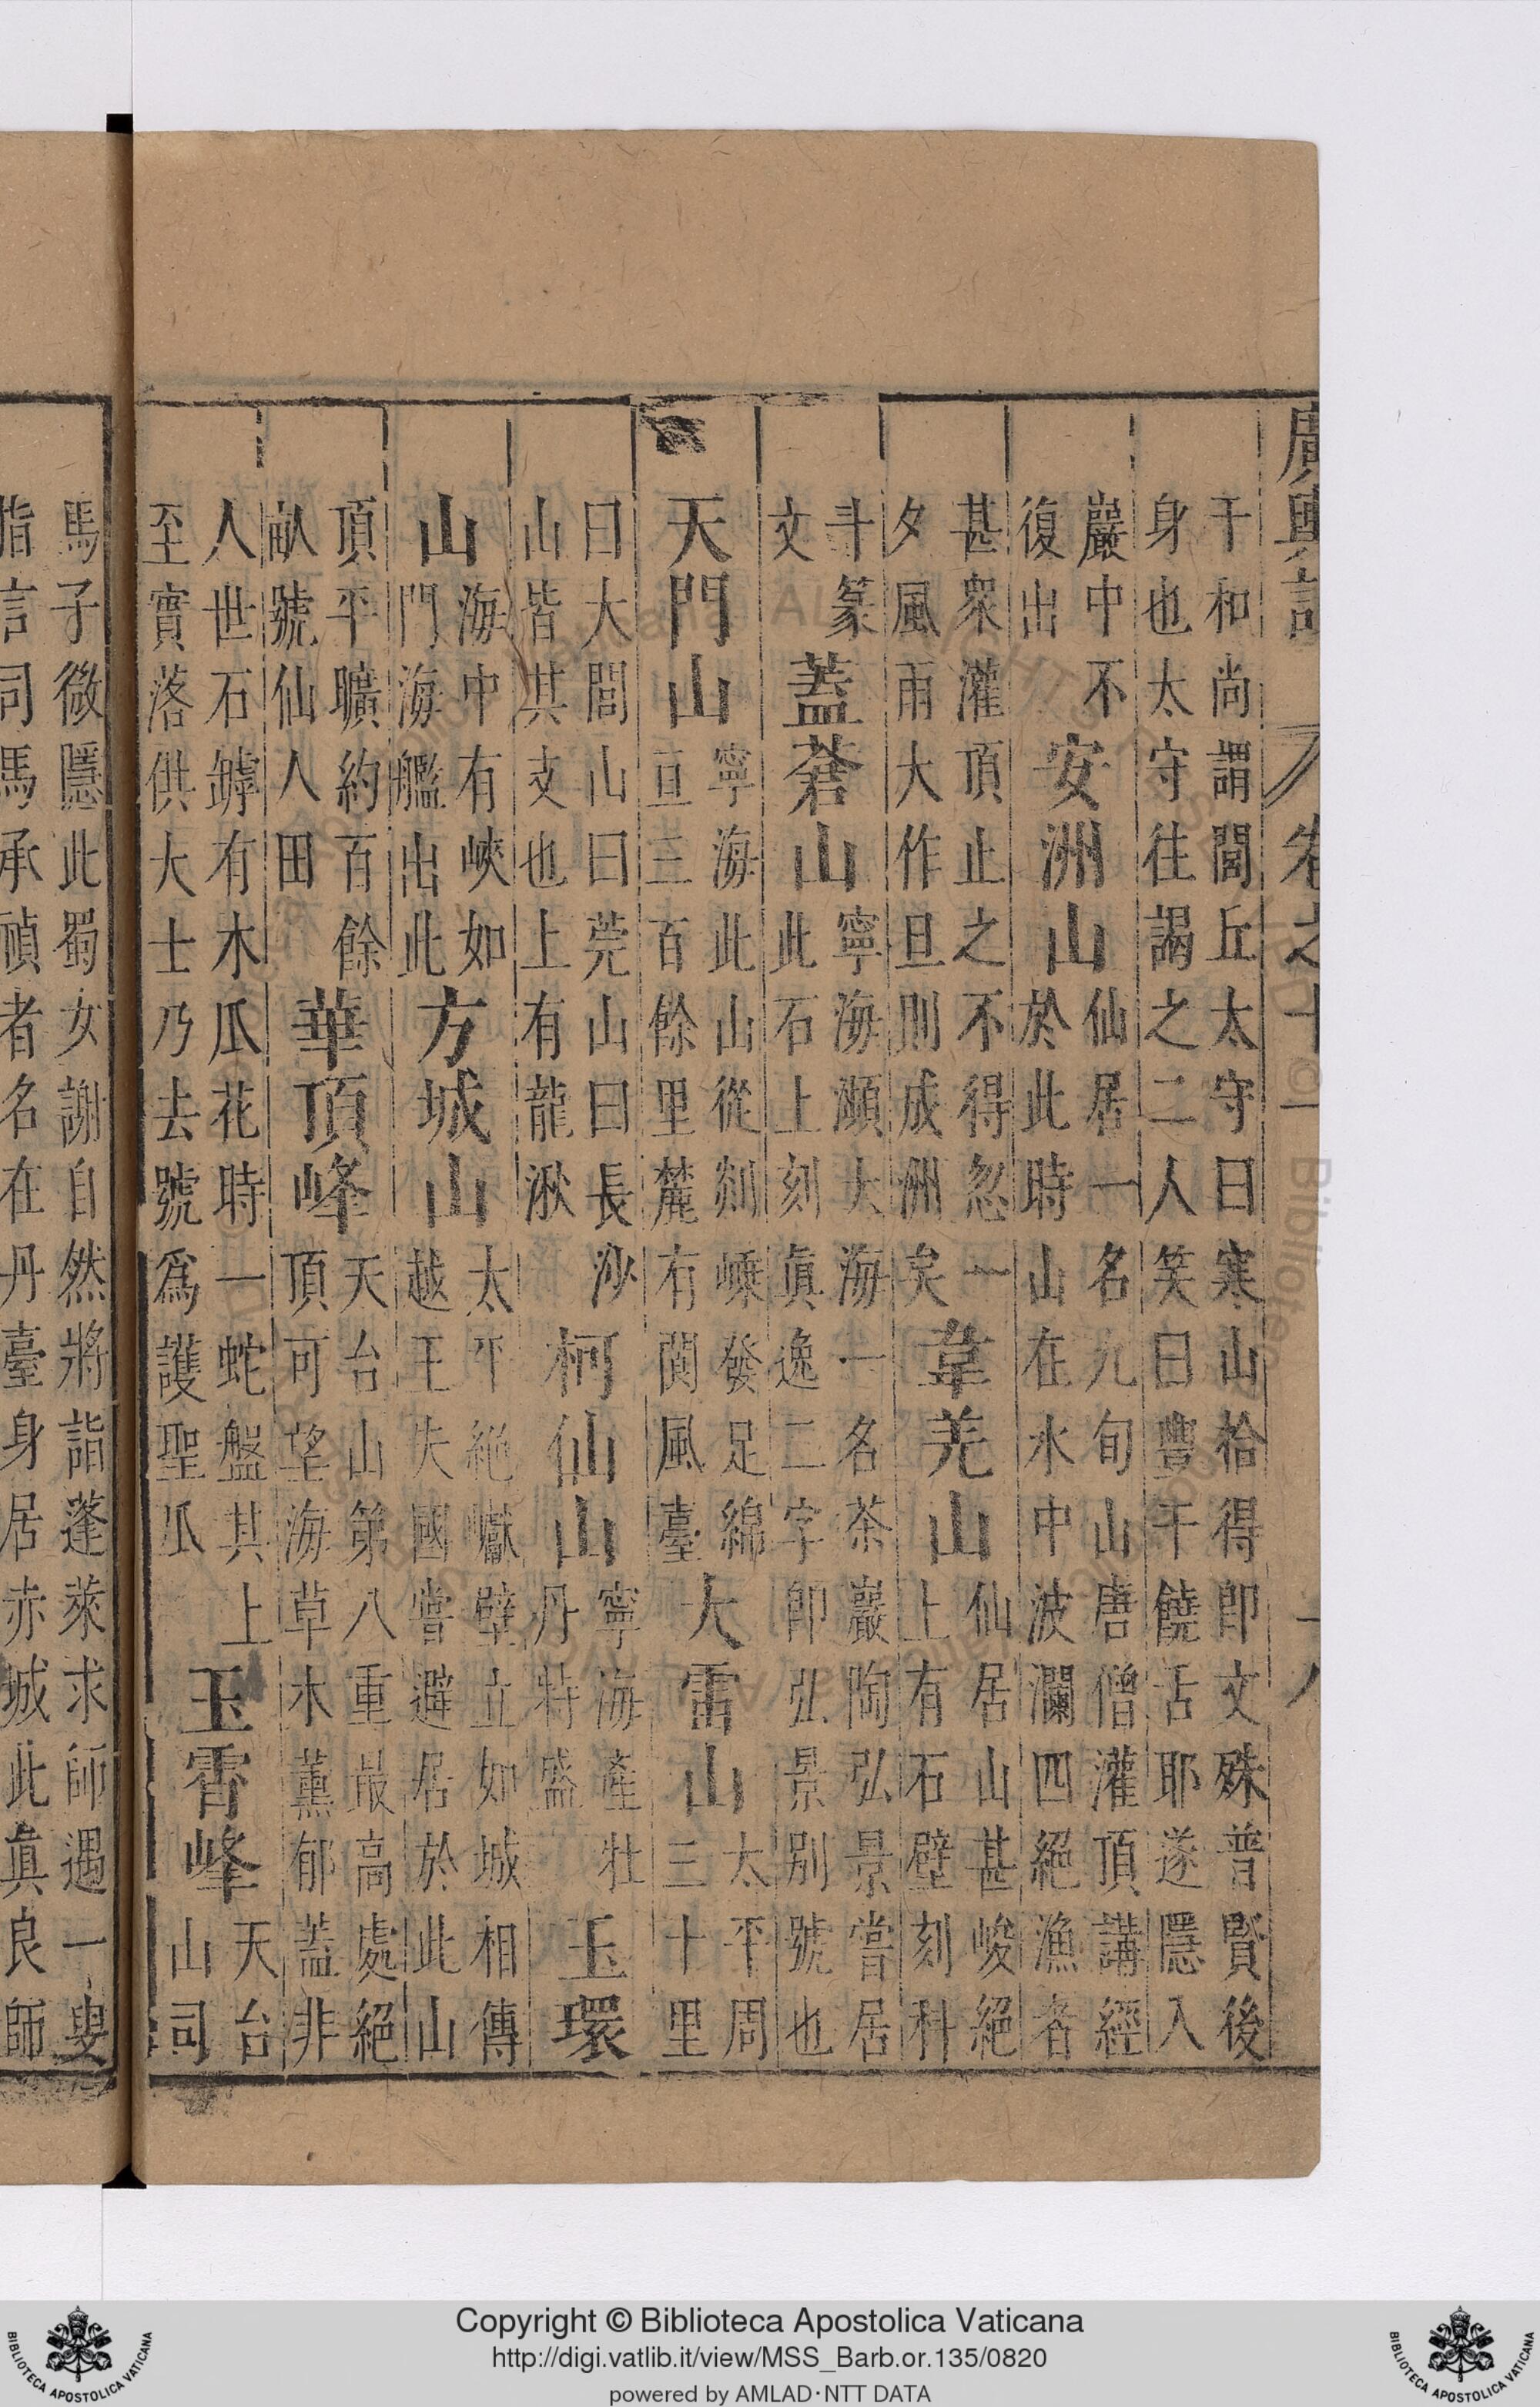 廣輿記 卷之十一
干和尚謂閭丘太守曰寒山拾得即文殊普賢後
身也太守往謁之二人笑曰豐干饒舌耶遂隱入
巖中不
復出
安洲山
仙居一名九旬山唐僧灌頂講經
於此時山在水中波瀾四絕漁者
甚衆灌頂止之不得忽一
夕風雨大作旦則成洲矣
韋羌山
仙居山甚峻絕
上有石壁刻科
斗篆
文
蓋蒼山
寧海瀕大海一名茶巖陶弘景嘗居
此石上刻眞逸二字即弘景別號也
天門山
寧海此山從剡嵊發足綿
亘三百餘里麓有閬風臺
大雷山
太平周
三十里
曰大閭山曰莞山曰長沙
山皆其支也上有龍湫
柯仙山
寧海產牡
丹特盛
玉環
山
海中有峽如
門海艦出此
方城山
太平絕巘壁立如城相傳
越王失國嘗避居於此山
頂平曠約百餘
畝號仙人田
華頂峰
天台山第八重最高處絕
頂可望海草木薰郁蓋非
人世石罅有木瓜花時一蛇盤其上
至實落供大士乃去號爲護聖瓜
玉霄峰
天台
山司
馬子微隱此蜀女謝自然將詣蓬萊求師遇一叟
指言司馬承禎者名在丹臺身居赤城此眞良師
Copyright © Biblioteca Apostolica Vaticana
http://digi.vatlib.it/view/MSS_Barb.or.135/0820
powered by AMLAD·NTT DATA
BIBLIOTECA APOSTOLICA VATICANA
BIBLIOTECA APOSTOLICA VATICANA